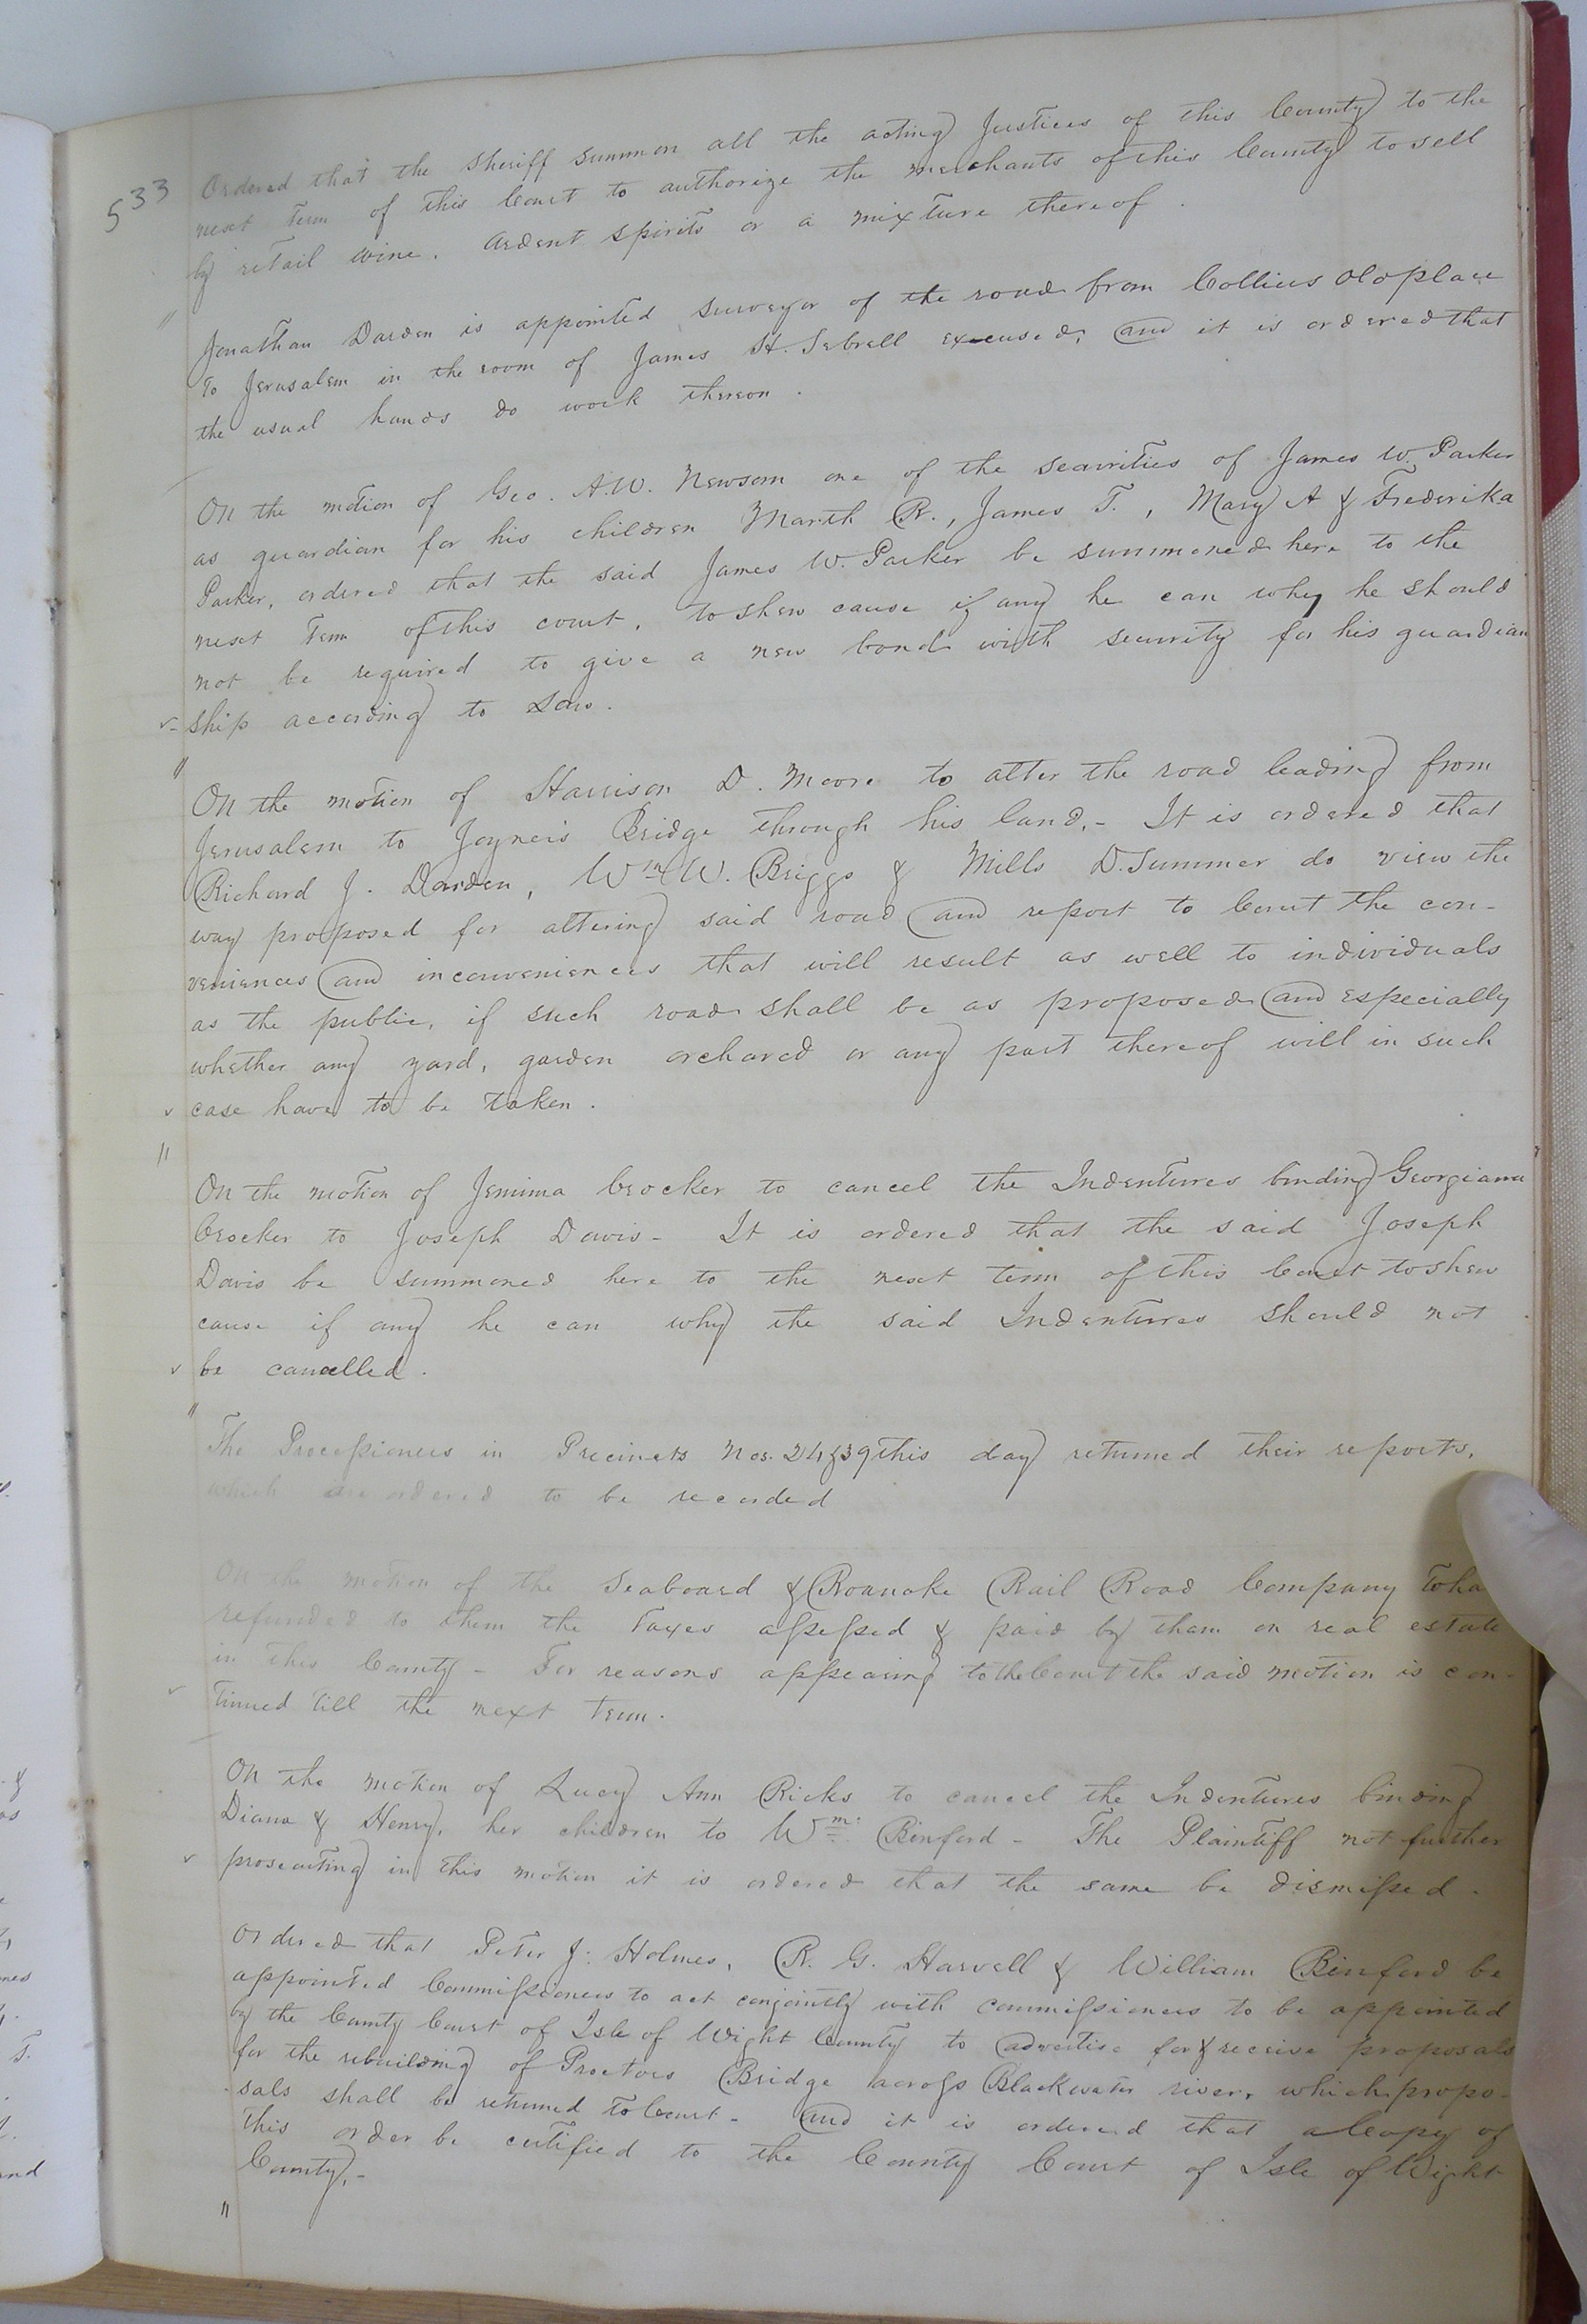 533
Ordered that the sheriff summon all the acting Justices of this County to the
next Term of this Court to authorize the merchants of this County to sell
by retail wine, ardent spirits or a mixture thereof.
Jonathan Darden is appointed surveyor of the road from Collins old place
to Jerusalem in the room of James H. Sebrell excused, and it is ordered that
the usual hands do work thereon.
On the motion of Geo. A.W. Newsom one of the securities of James W. Parker
as guardian for his children Marth R., James T., Mary A & Frederika
Parker, ordered that the said James W. Parker be summoned here to the
next Term of this court, to shew cause if any he can why he should
not be required to give a new bond with security for his guardian
ship according to Law.
On the motion of Harrison D. Moore to alter the road leading from
Jerusalem to Joyner's Bridge through his land,- It is ordered that
Richard J. Darden, Wm W. Briggs & Mills D. Summer do view the
way proposed for altering said road and report to Court the con-
veniences and inconveniences that will result as well to individuals
as the public, if such road shall be as proposed and especially
whether any yard, garden orchared or any part thereof will in such
case have to be taken.
On the motion of Jemima Crocker to cancel the Indentures binding Georgiana
Crocker to Joseph Davis- It is ordered that the said Joseph
Davis be summoned here to the next term of this Court to shew
cause if any he can why the said Indentures should not
be cancelled.
The Processioners in Precincts Nos. 24 & 39 this day returned their reports,
which are ordered to be recorded
On the motion of the Seaboard & Roanoke Rail Road Company to ha
refunded to them the Taxes assessed & paid by tham on real estate
in this County - For reasons appearing to the Court the said motion is con-
tinued till the next Term.
On the motion of Lucy Ann Ricks to cancel the Indentures binding
Diana & Henry, her children to Wm. Binford - The Plaintiff not further
prosecuting in this motion it is ordered that the same be dismissed.
Ordered that Peter J. Holmes, R. G. Harvell & William Binford be
appointed Commissioners to act conjointly with commissioners to be appointed
by the County Court of Isle of Wight County to advertise for & receive proposals
for the rebuilding of Proctors Bridge across Blackwater river, which propo-
sals shall be returned to Court - and it is ordered that a Copy of
this order be certified to the County Court of Isle of Wight
County,-